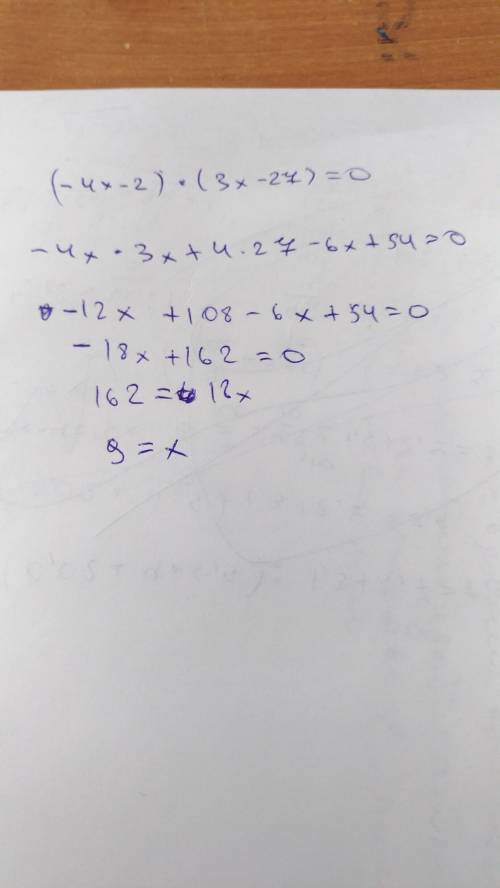 (-4x-2)·(3x-27)=0
-4x·3x+4·27-6x+54=0
-12x +108-6x+54=0
-18x+162=0
162=18x
9=x